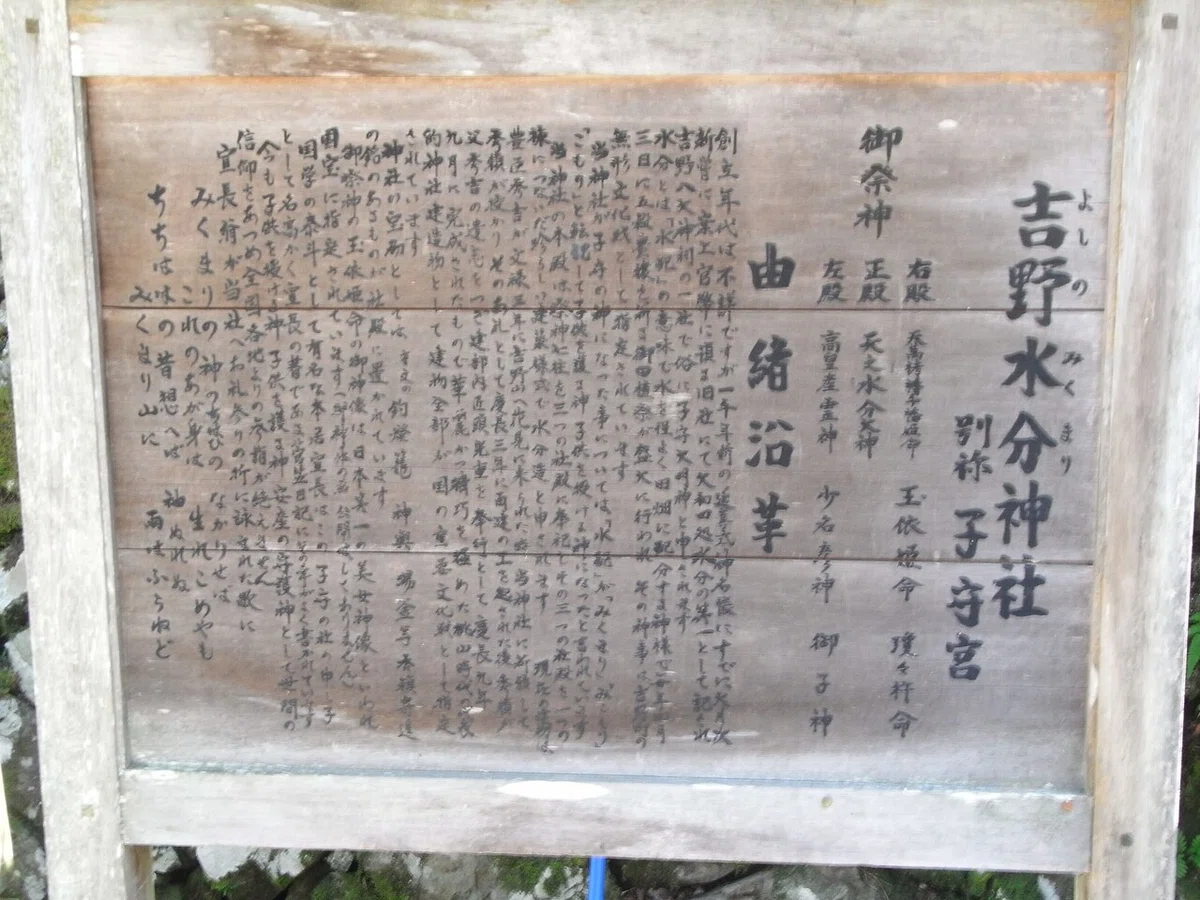 吉野水分神社
よしの みくまり
別称 子守宮
御祭神
右殿 玉依姫命 瓊々杵命
正殿 天之水分大神
左殿 高皇産霊神 少名彦神 御子神
由緒沿革
創立年代は不詳ですが一千年前の延喜式神名帳にすでに大月次
新嘗に案上官幣に預る旧社にて大和四処水分の第一として記され
吉野八大神祠の一社で俗に子守大明神と申されます
水分とは「水配」の意味で水を程よく田畑に配分する神様で毎年四月
三日に五穀豊穣を祈る御田植祭が盛大に行われ その神事は吉野町の
無形文化財として指定されています
当神社が子守の神になった事については「水配」が「みくまり」「みごもり」
「こもり」と転訛して子供を護る神 子供を授ける神になったと言われています
当神社の本殿は祭神七柱を三つの社殿に奉祀しその三つの社殿を一つの
棟につないだ珍らしい建築様式で水分造と申されます 現在の建物は
豊臣秀吉が文禄三年に吉野へ花見に来られた時 当神社に祈願して
秀頼が授かり そのお礼として慶長三年に再建の工を起された後 秀頼が
父秀吉の遺志をつぎ建部内匠頭光重を奉行として慶長九年
九月に完成されたもので華麗かつ精巧を極めた桃山時代の代表
的神社建造物として建物全部が国の重要文化財として指定
されています
神社の宝物としては 釣燈籠 神輿 湯釜等 秀頼寄進
の銘のあるものが社殿に置かれています
御祭神の玉依姫命の御神像は日本第一の美女神像といわれ
国宝に指定されています(御神体の為 公開はしておりません)
国学の泰斗として有名な本居宣長はこの子守の社の申し子
として名高かく宣長の昔である菅笠日記に
今も子供を授ける神 子供を護る神 安産の守護神として世間の
信仰をあつめ全国各地よりの参詣が絶えません
宣長翁が当社へお礼参りの折に詠まれた歌に
みくまりの神のちはひのなかりせは
これのあか身は生れこめやも
ちちははの昔思へは袖ぬれぬ
みくまり山に雨はふらねど